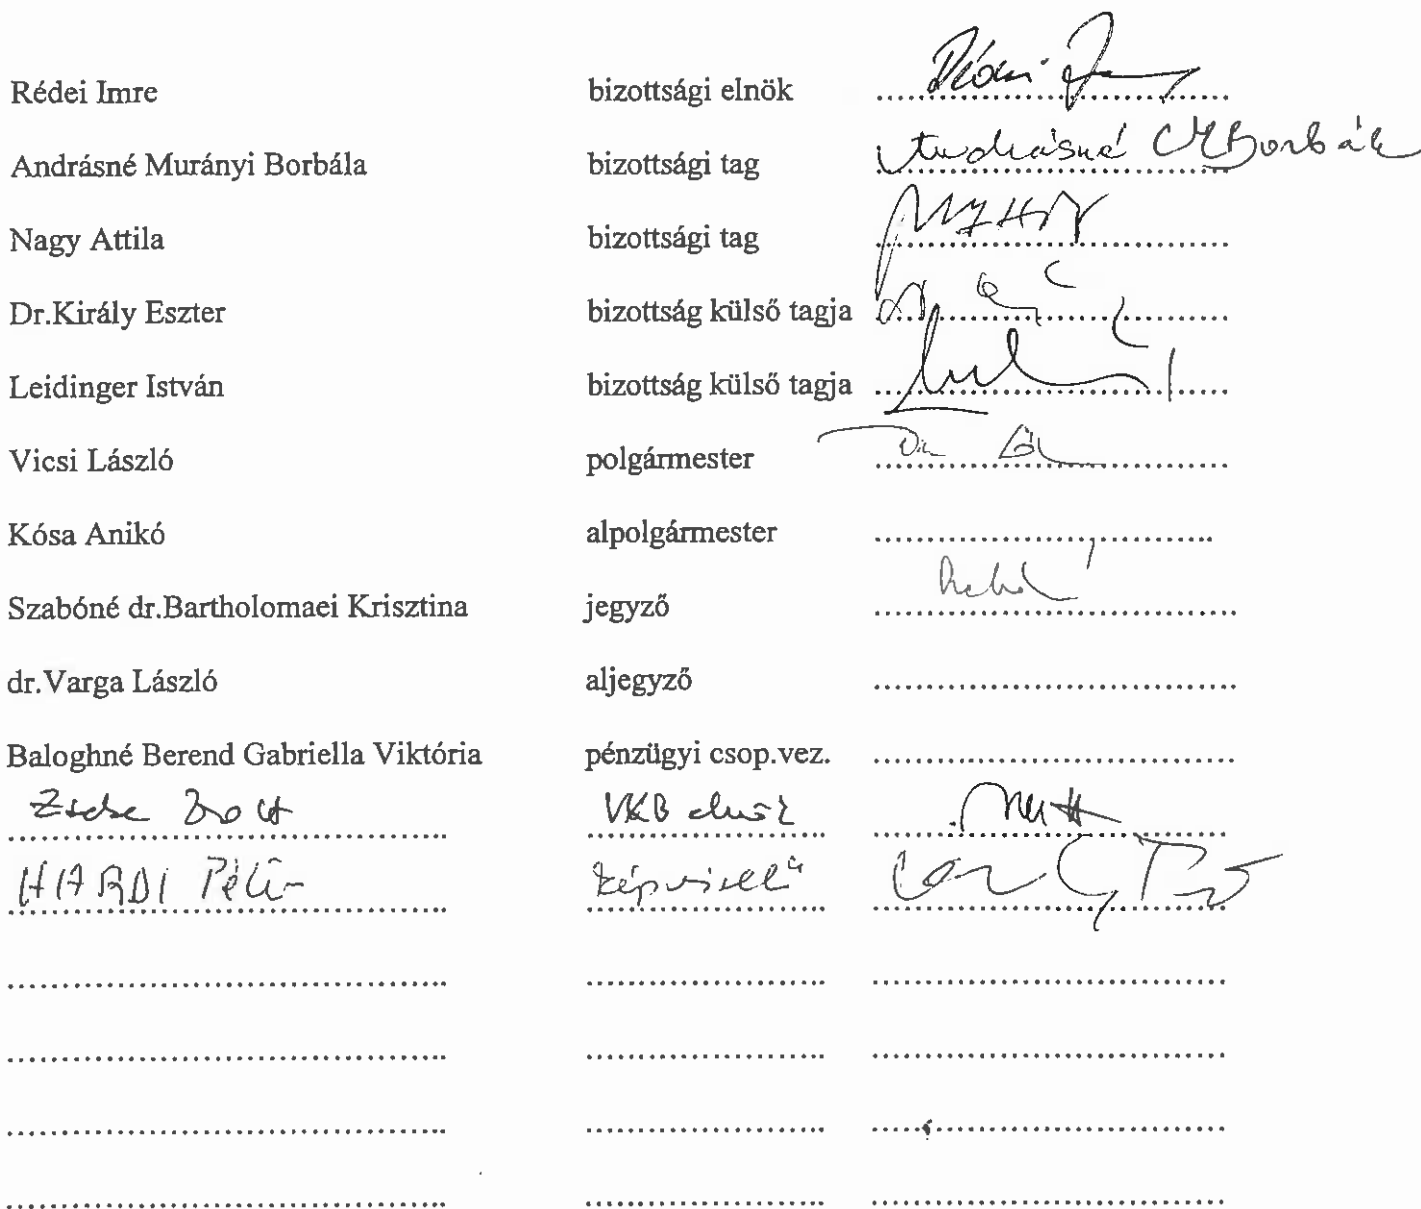 Rédei Imre bizottsági elnök ..............................
Andrásné Murányi Borbála bizottsági tag Andrásné M Borbála
Nagy Attila bizottsági tag ..............................
Dr.Király Eszter bizottság külső tagja ..............................
Leidinger István bizottság külső tagja ..............................
Vicsi László polgármester ..............................
Kósa Anikó alpolgármester ..............................
Szabóné dr.Bartholomaei Krisztina jegyző ..............................
dr.Varga László aljegyző ..............................
Baloghné Berend Gabriella Viktória pénzügyi csop.vez. ..............................
Zsolt VKB elnök
HARDI Péter képviselő